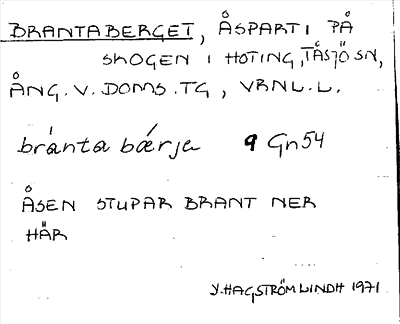 BRANTABERGET, ÅSPARTI PÅ
SKOGEN I HOTING, TÅSJÖ SN,
ÅNG. V. DOMS. TG, VRNL. L.
bránta bǽrje 9 Gn54
ÅSEN STUPAR BRANT NER
HÄR
Y. HAGSTRÖM LINDH 1971